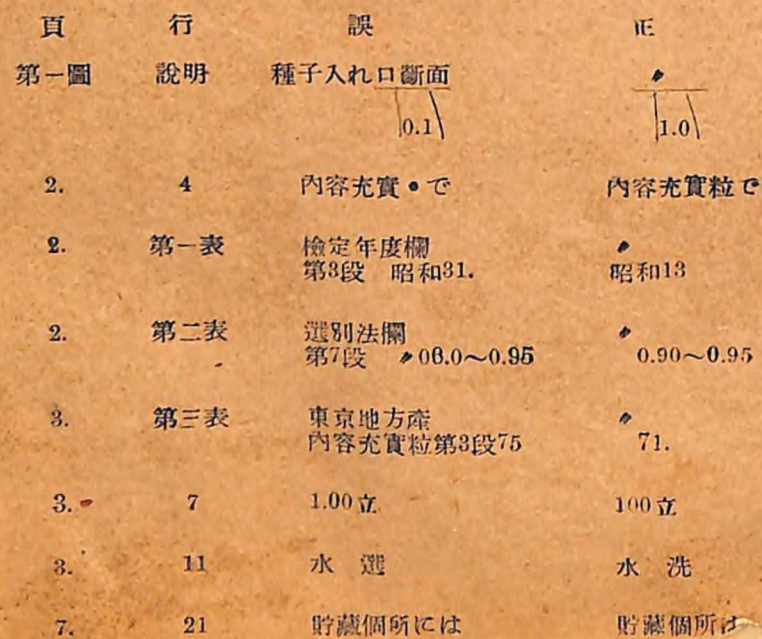 頁 行 誤 正
第一圖 說明 種子入れ口斷面 〃
0.1 1.0
2. 4 內容充實●で 內容充實粒で
2. 第一表 檢定年度欄 〃
第3段 昭和31. 昭和13
2. 第二表 選別法欄 〃
第7段 〃06.0～0.95 0.90～0.95
3. 第三表 東京地方產 〃
內容充實粒第3段75 71.
3. 7 1.00立 100立
3. 11 水 選 水 洗
7. 21 貯藏個所には 貯藏個所は